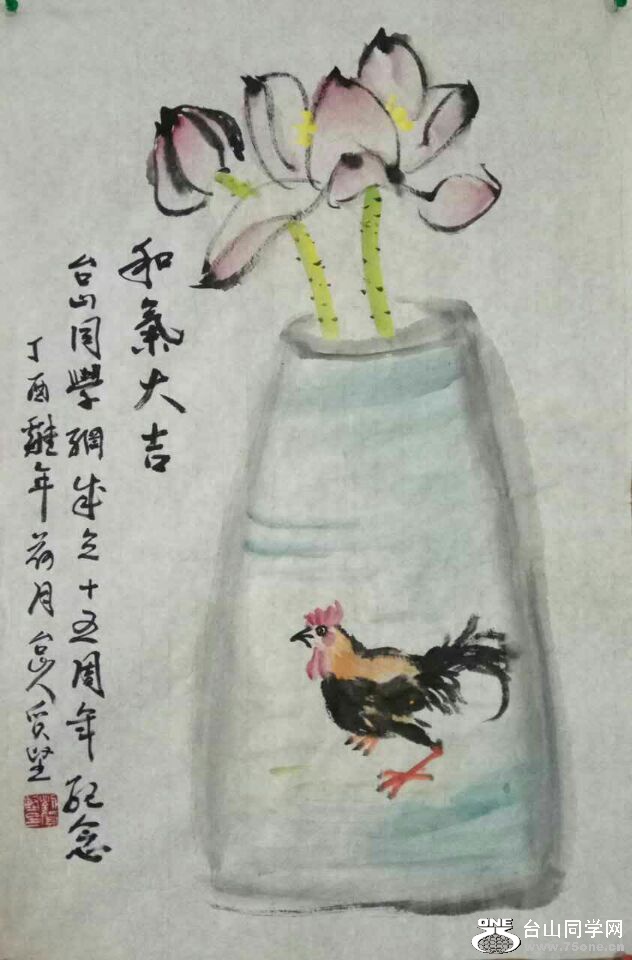 和氣大吉
台山同學網成立十五周年纪念
丁酉雞年荷月台山人
ONE
台山同学网
www.75one.cn